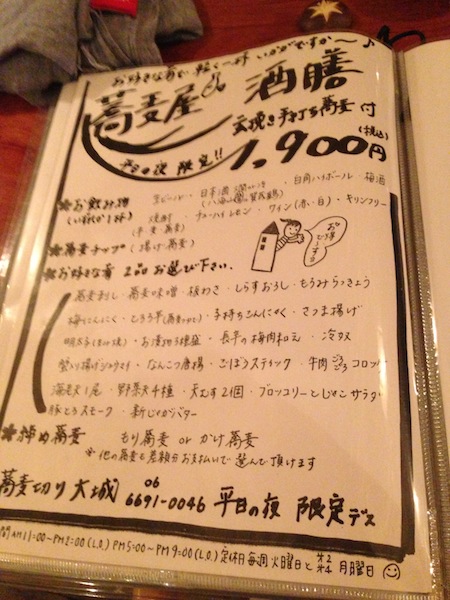 お好きな肴で軽く一杯いかがですか〜♪
蕎麦屋の酒膳
石挽き手打ち蕎麦付
平日の夜限定!! 1,900円(税込)
★お飲み物 生ビール・日本酒・角ハイボール・梅酒
(いずれか1杯) 焼酎(芋・麦・蕎麦)・チューハイレモン・ワイン(赤・白)・キリンフリー
★蕎麦チップ(揚げ蕎麦)
お得でっす
★お好きな肴 2品お選び下さい.
蕎麦刺し・蕎麦味噌・板わさ・しらすおろし・もろみらっきょう
梅にんにく・とろろ芋・子持ちこんにゃく・さつま揚げ
明太子・お漬物3種盛・長芋の梅肉和え・冷奴
蟹入り揚げシュウマイ・なんこつ唐揚・ごぼうスティック・牛肉ごろごろコロッケ
海老天1尾・野菜天4種・天むす2個・ブロッコリーとじゃこサラダ
豚とろスモーク・新じゃがバター
★〆め蕎麦 もり蕎麦 or かけ蕎麦
※他の蕎麦も差額分お支払いで選んで頂けます
蕎麦切り 大城 06 6691-0046 平日の夜 限定デス
間AM11:00〜PM2:00(L.O.) PM5:00〜PM9:00(L.O.) 定休日毎週火曜日と第2第4月曜日